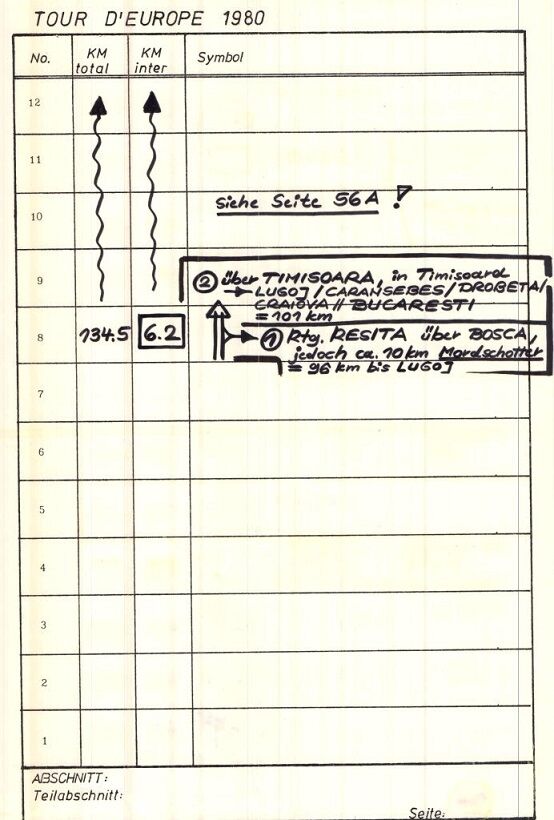 TOUR D'EUROPE 1980
No. KM total KM inter Symbol
12
11
10 siehe Seite 56A !
9 ② über TIMISOARA, in Timisoara
→ LUGOJ / CARANSEBES / DROBETA /
CRAIOVA // BUCARESTI
= 101 km
8 134.5 6.2 ① Rtg. RESITA über BOSCA,
jedoch ca. 10 km Mordschotter
= 96 km bis LUGOJ
7
6
5
4
3
2
1
ABSCHNITT:
Teilabschnitt:
Seite: